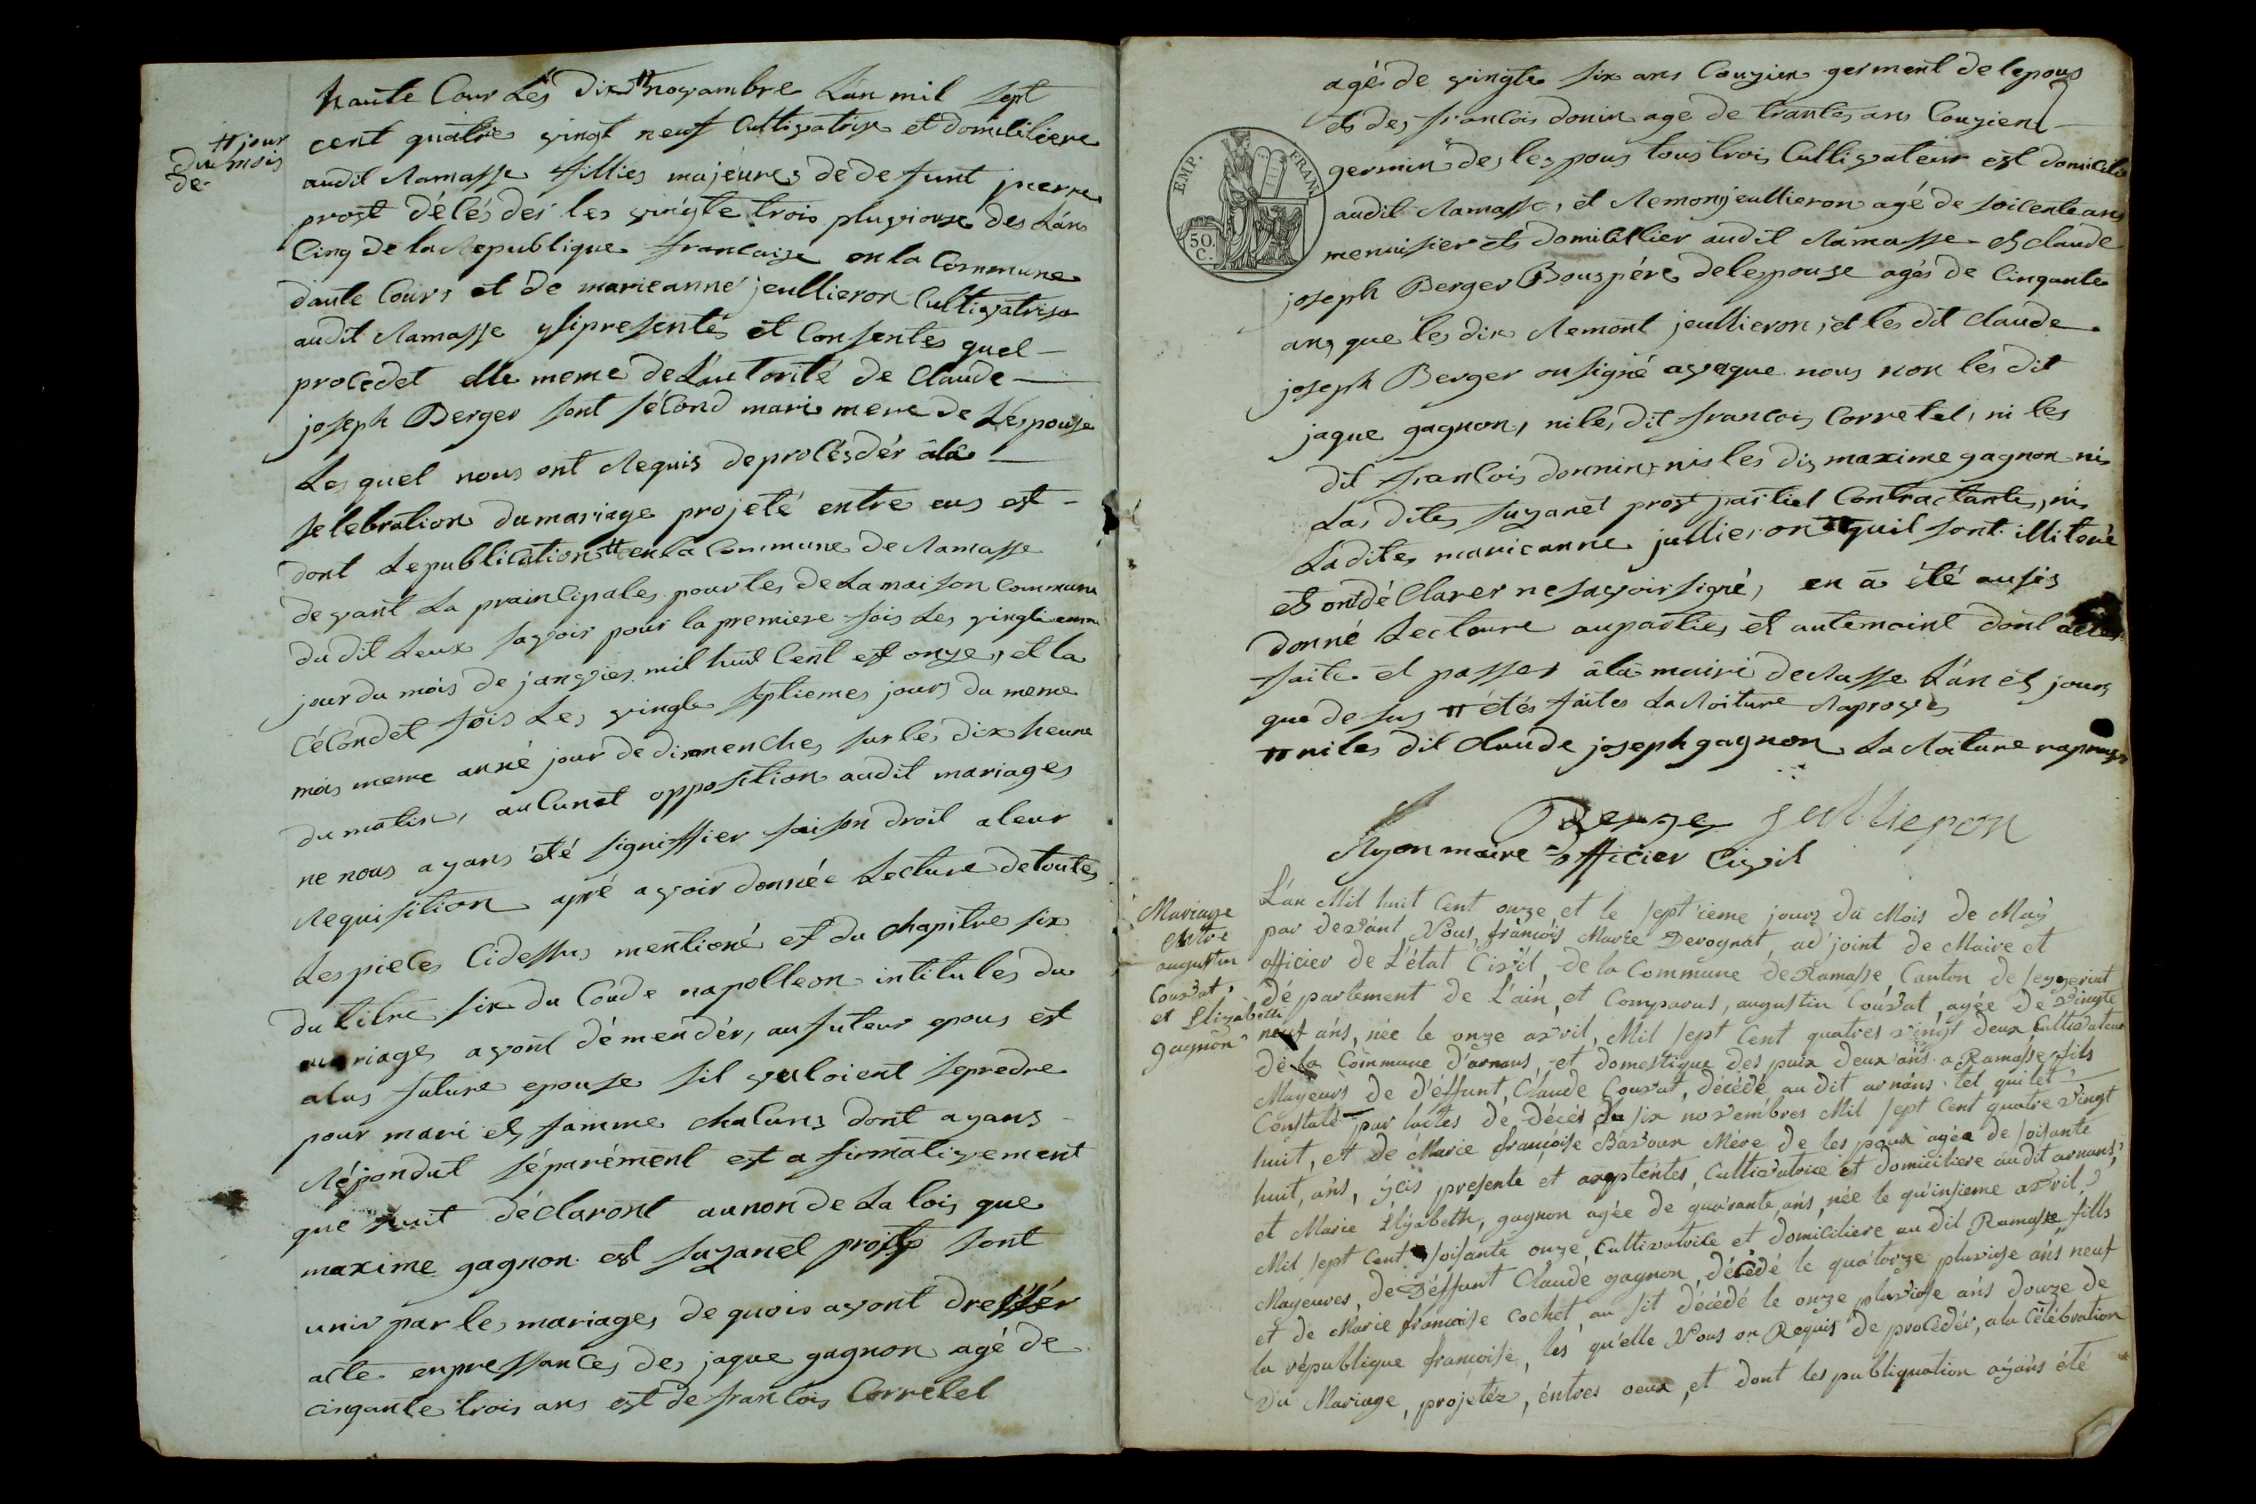 haute Cour Les Dix # novambre Lan mil sept
# jour
du mois
de
cent quatre vingt neuf Cultivatrise et domiciliere
audit Ramasse fillies majeures de defunt pierre
prost délés dés les vingte trois pluviouse des Lan
Cinq de la Republique francaise en la Commune
daute Cours et de marieanne jeullieron Cultivatrise
audit Ramasse ysipresentes et Consentes quel
procedet elle meme de Lautorité de Claude
joseph Berger sont sécond mari mere de Lespouse
Les quel nous ont Requis deprolésdér àla
selebration dumariage projeté entre eus est
dont Lepublication # en la Commune de Ramasse
devant La prainlipales pourtes de La maison Commune
du dit Leux savoir pour la premiere fois Les vingte
jour du mois de janvier mil huit Cent est onze, et la
célondet fois Les vingte septiemes jours du meme
mois meme anné jour de dimenches sur les dix heure
du matin, aulunet opposition audit mariages
ne nous ayans été signiffier faison droit aleur
Requisition apré avoir donnée Lecture detoutes
Les pieces Cidessus mentioné et du chapitre six
du titre six du Coude napolleon intitulés du
mariage avont démendér, aufuteur epous est
alas future epouse sil vuloient sepredre
pour mari et famme chaluns dont ayans
Répondut séparément est afirmativement
que suit déclaront aunon de La lois que
maxime gagnon est suzanet prost sont
unis par les mariages de quois avont dressér
alte enpressances des jaque gagnon agé de
cinqante trois ans est de francois Corretel
agés de vingte six ans Couzien germent de lepous
et des francois donin age de trantes ans Couzien
germin des lespous tous trois Cultivateur est domicilie
audit Ramasse, et Remon jeullieron agé de soicente ans
menuisier et domicillier audit Ramasse et claude
joseph Berger Bouspére delespouse agés de Cinqante
ans que les dix Remont jeullieron, et les dit Claude
joseph Berger on signé aveque nous non les dit
jaque gagnon, niles dit francois Corretel, ni les
dit francois donnin, nis les dis maxime gagnon nis
Las dites suzanet prost partiel Contractante, nis
Ladites marieanne jullieron # quil sont illitoré
et ont déclarer ne savoir signé, en à été ausis
donné Lecture auparties et autemoint dont actes
faite et passer àla mairi de Rasse Lan et jours
que desus # étés faites La Roiture Raprovés
# niles dit Claude joseph gagnon La Roiture raprovés
EMP. FRAN.
50
C.
Berger jullieron
Ryon maire officier Civil
Mariage
entre
augustin
Couvat,
et Elizabeth
gagnon
L'an Mil huit Cent onze, et le sept'ieme jours du Mois de May
par devant Nous, francois Marie Derognat, ad'joint de Maire et
officier de L'état Civil, de la Commune de Ramasse, Canton de seyzeriat
département de L'ain, et Comparus, augustin Couvat, agée de vingte
neuf ans, née le onze avril, Mil sept Cent quatres vingt deux Cultivateur
de la Commune d'arnans, et domestique des puix deux ans a Ramasse, fils
Mayeurs de d'éffunt, Claude Couvat, décédé au dit arnans tel quilet
Constaté par lactes de décés du six novembres Mil sept Cent quatre vingt
huit, et de Marie françoise Bavoux Mére de les poux agée de soisante
huit, ans, ycis presente et aseptentes, Cultivatrice et domiciliere au dit arnans,
et Marie Elizabeth, gagnon agée de quarante ans, née le qu'insieme avril,
Mil sept Cent soisante onze, Cultivatrice et domiciliere au dit Ramasse fills
Mayeures, de Déffunt Claude gagnon, décédé le quatorze pluviose ans neuf
et de Marie francoise Cochet, au sit décédé le onze pluviose ans douze de
la république françoise, les qu'elle Nous on Requis de procédér, a la Célébration
du Mariage, projetéz, éntres oeux, et dont les publiquation ayans été